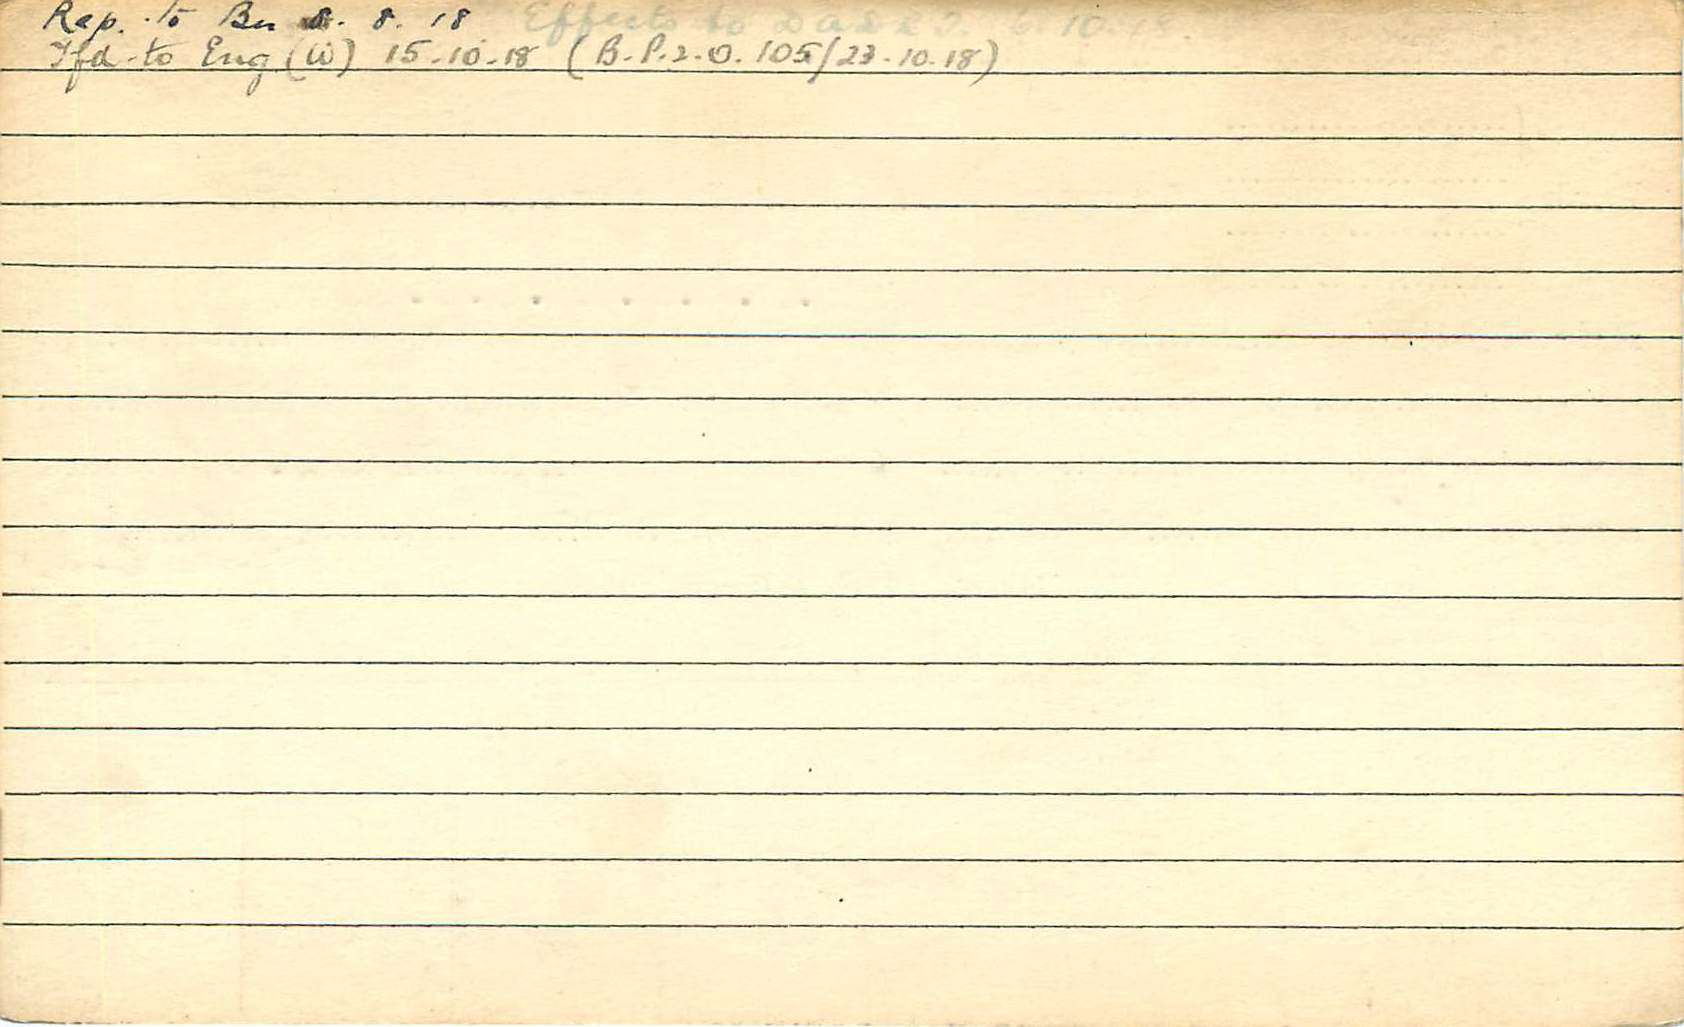 Rep. to Bn 8. 8. 18 Effects to 10.
Tfd to Eng (W) 15-10-18 (B.P.2.O. 105/23.10.18)